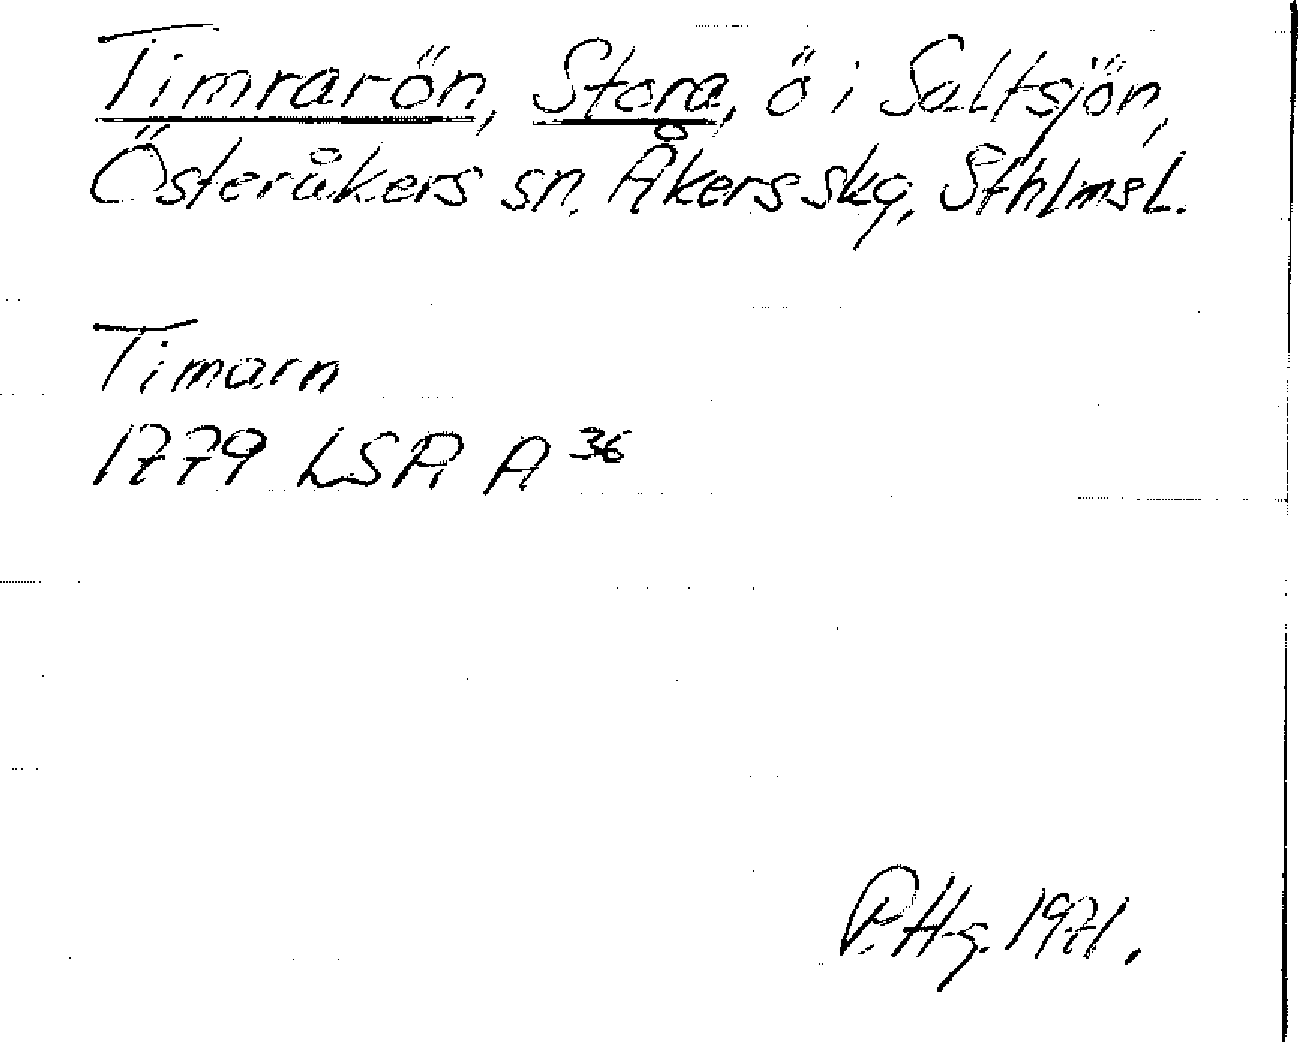 Timrarön, Stora, ö i Saltsjön,
Österåkers sn. Åkers skg, SthlmsL.
Timarn
1779 LSA A 36
P. Hg. 1971.